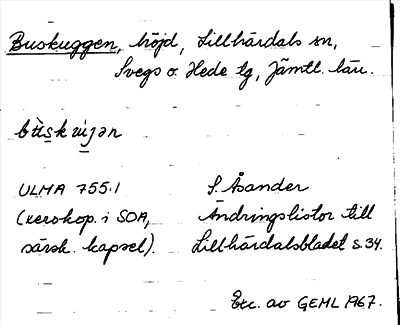 Buskuggen, höjd, Lillhärdals sn,
Svegs o. Hede tg, Jämtl. län.
ULMA 755:1 S. Åsander
(xerokop. i SOA, Ändringslistor till
särsk. kapsel). Lillhärdalsbladet s. 34.
Exc. av GEML 1967.